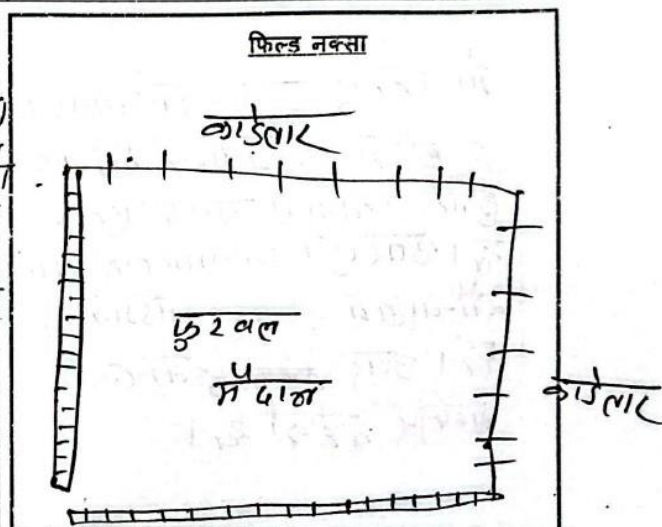 फिल्ड नक्सा
काडेतार
फुटवल
मैदान
काडेतार